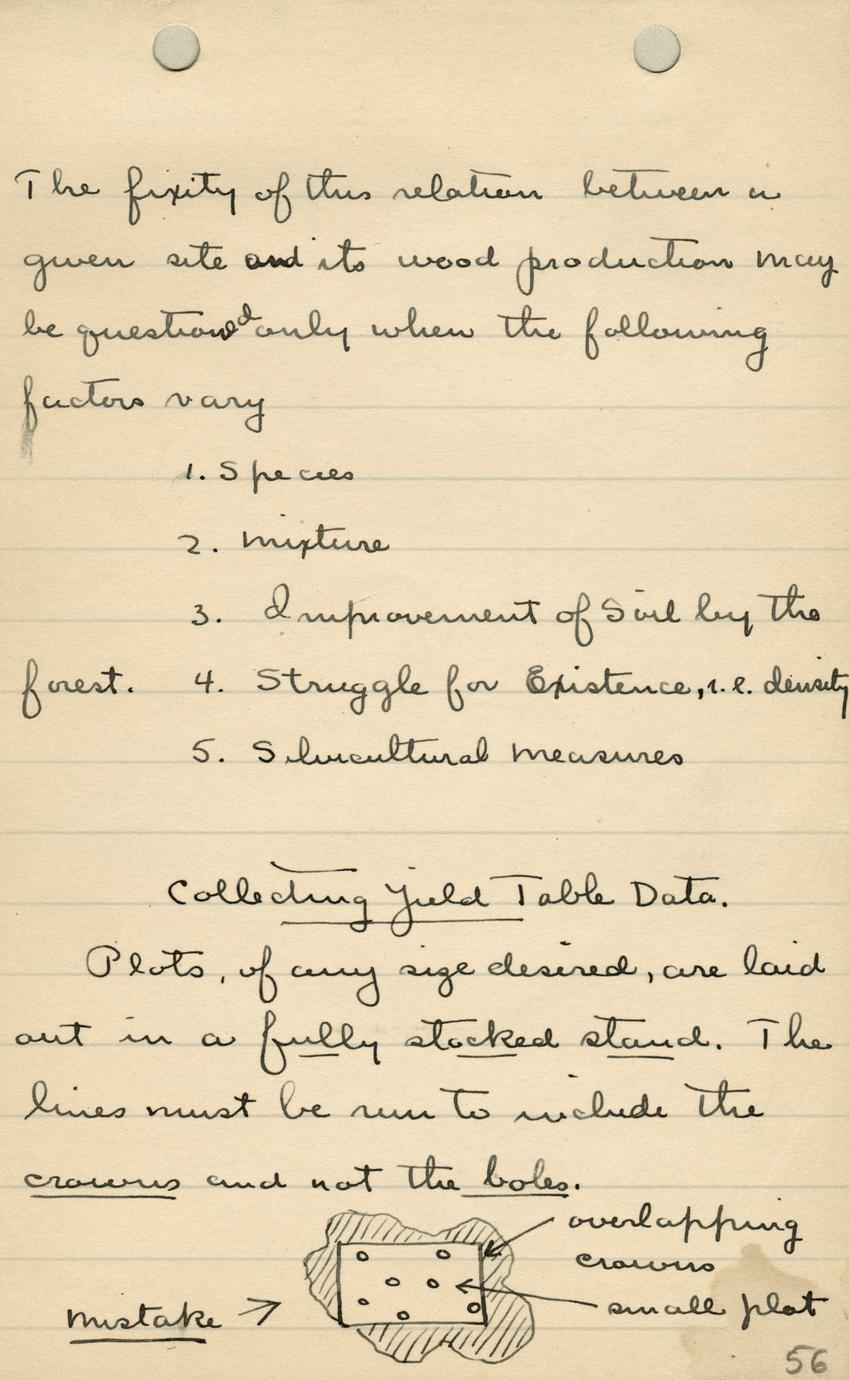 The fixity of this relation between a
given site and its wood production may
be questioned only when the following
factors vary
1. Species
2. Mixture
3. Improvement of Soil by the
forest. 4. Struggle for Existence, i.e. density
5. Silvicultural measures
Collecting Yield Table Data.
Plots, of any size desired, are laid
out in a fully stocked stand. The
lines must be run to include the
crowns and not the boles.
overlapping
crowns
small plot
Mistake →
56